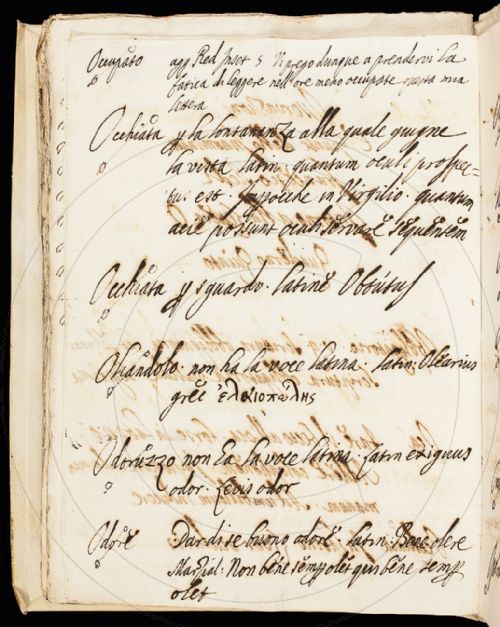 Occupato agg. Red. Inset. 5 Vi prego dunque a prendervi la
fatica di leggere nell'ore meno occupate questa mia
lettera
Occhiata p la lontananza alla quale giugne
la vista latin. quantum oculi prospec=
tus est. Impocche in Virgilio. quantum
acie possunt oculi servare sequentem
Occhiata p sguardo. latine Obtutus
Oliandolo. non ha la voce latina. latin: Olearius
grec ἐλαιοπώλης
Odoruzzo non ha la voce latina. latin exiguus
odor. Levis odor
Odore Dar di se buono odore. latin. Bene olere
Marzial. Non bene semp olet qui bene semp
olet